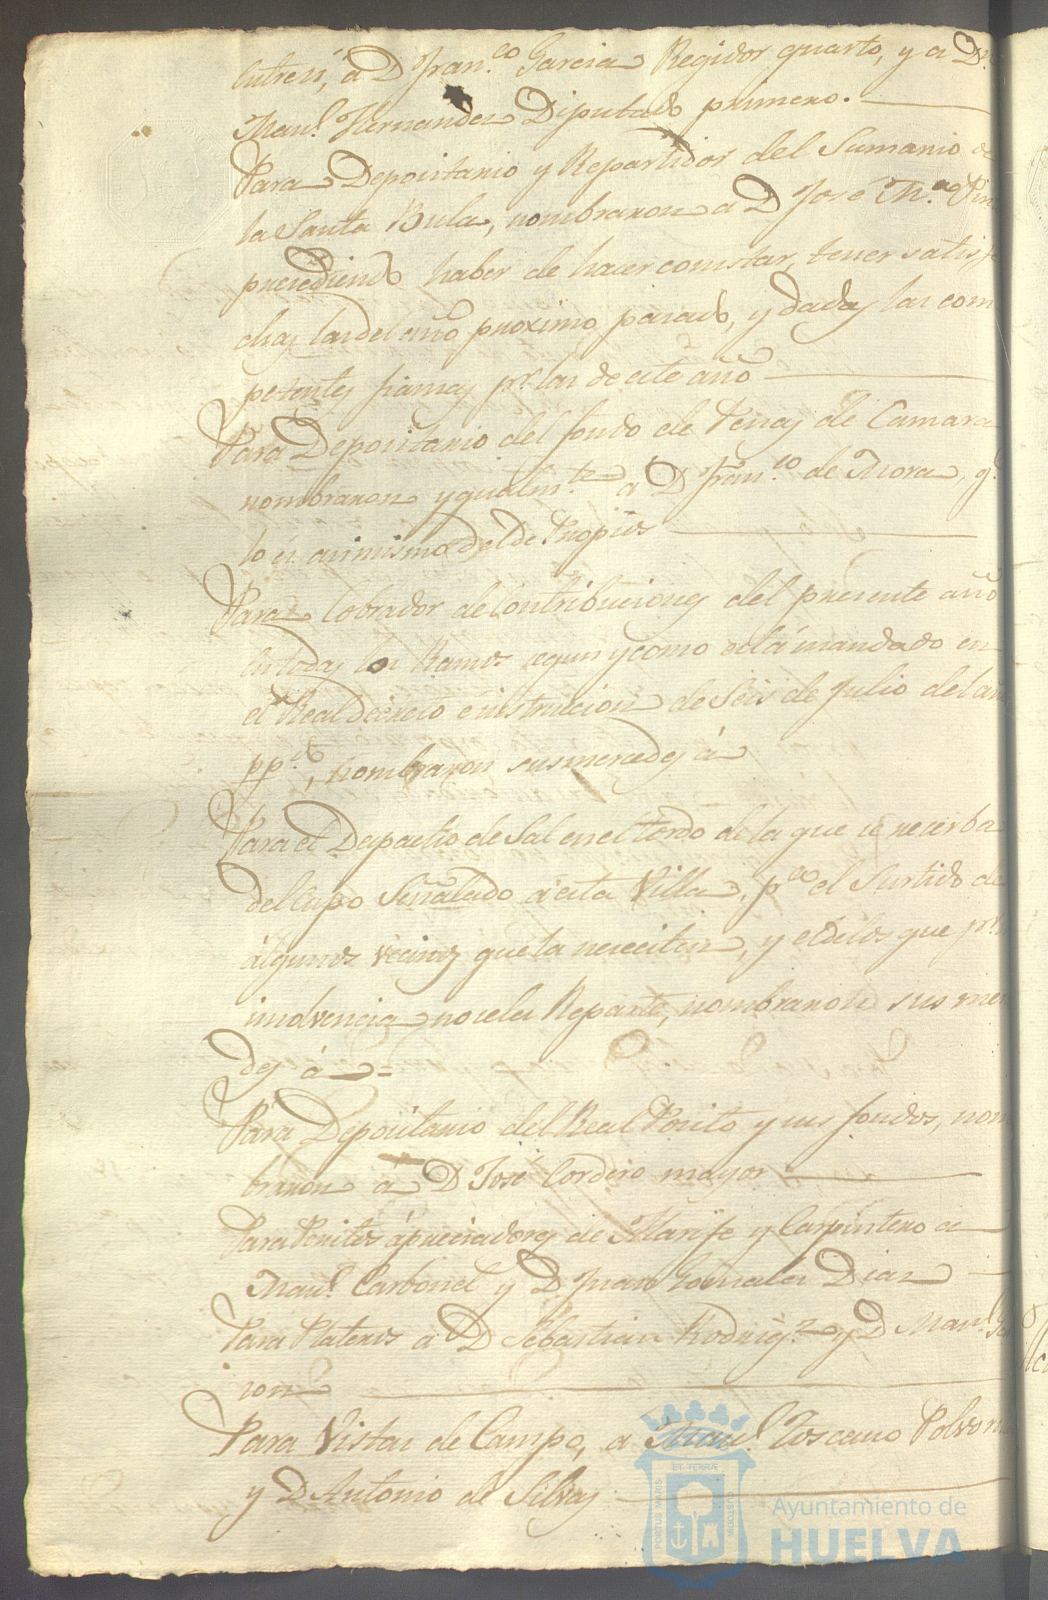 butren, á D Fran.co Garcia Regidor quarto, y a Dn
Man.l Hernandez Diputado primero.
Para Depocitario y Repartidor del Sumario de
la Santa Bula, nombraron a D José M.a
precediendo haber de hacer constar, tener satisfe
chas las del año proximo pasado, y dadas las com
petentes fianzas pr. las de este año
Para Depocitario del fondo de Penas de Camara
nombraron ygualm.te a D Fran.co de Mora, q.
lo es asimismo del de Propios
Para Cobrador de Contribuciones del presente año
en todos los Ramos segun y como está mandado en
el Real decreto e instruccion de Seis de Julio del añ
pp.do, nombraron sus mercedes á
Para el Depacho de Sal en el tordo de la que se reciba
del Cupo Señalado á esta Villa, p.a el Surtido de
algunos vecinos que la nececiten, y el de los que pr.
insolvencia no se les Reparte, nombraron sus mer
des á
Para Depocitario del Real Posito y sus fondos, nom
braron a D José Cordero mayor
Para Peritos apreciadores de Alarife y Carpintero a
Man.l Carbonel y D Juan Gonzalez Diaz
Para Plateros a D Sebastian Rodrig.z y D Man.l
ron
Para Vistas de Campo, a Man.l Toscano
y D Antonio de Silva
PORTUS MARIS
ET TERRÆ
CUSTODIA
Ayuntamiento de
HUELVA